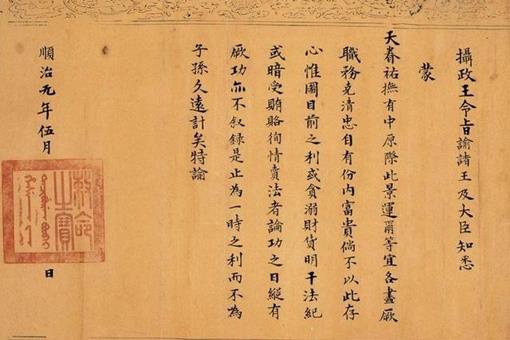 攝政王令旨諭諸王及大臣知悉
蒙
天眷祐撫有中原際此景運爾等宜各盡厥
職務克清忠自有份內富貴倘不以此存
心惟圖目前之利或貪溺財貨明干法紀
或暗受賄賂徇情賣法者論功之日縱有
厥功亦不叙錄是止為一時之利而不為
子孫久遠計矣特諭
順治元年伍月 日
命
之寶